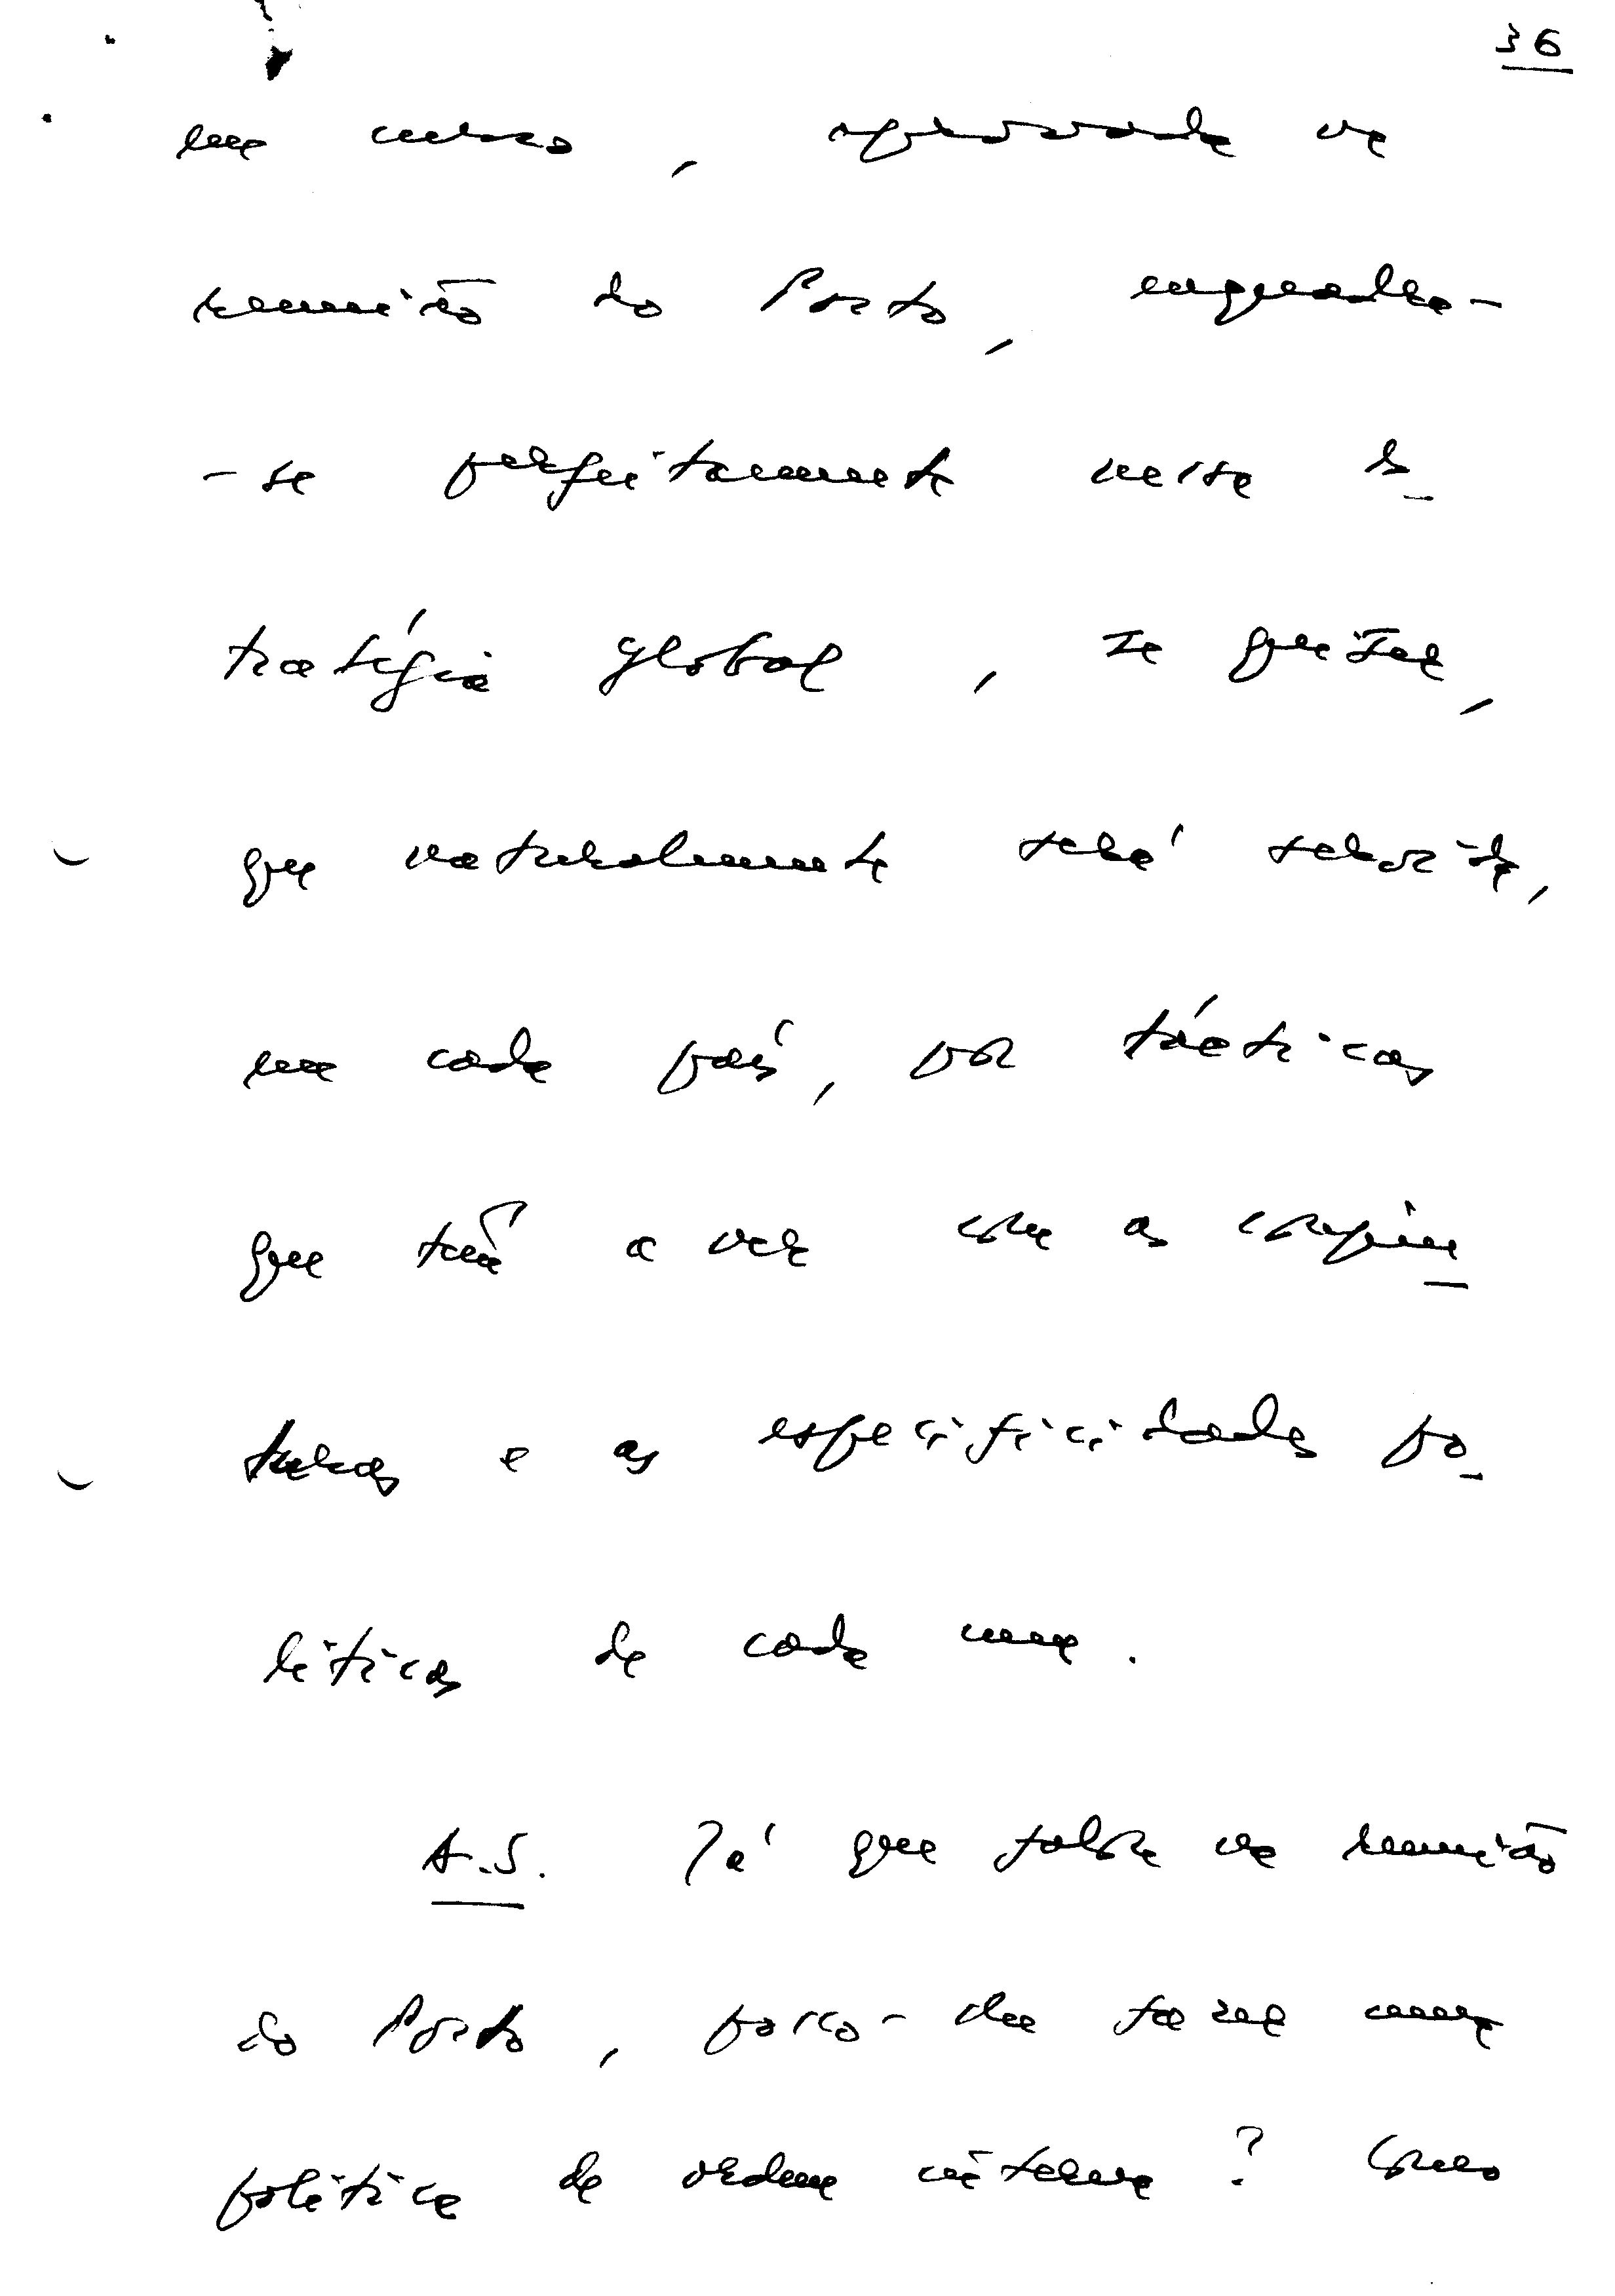 36
em curso, aprovada na
reunião do Porto, enquadra-
-se perfeitamente nessa es
tratégia global, se quiser,
que naturalmente será servida,
em cada país, por tácticas
que têm a ver com as conjun
turas e as especificidades po
líticas de cada um.
A.S. Já que falou na reunião
do Porto, posso-lhe fazer uma
política de ordem interna? Como